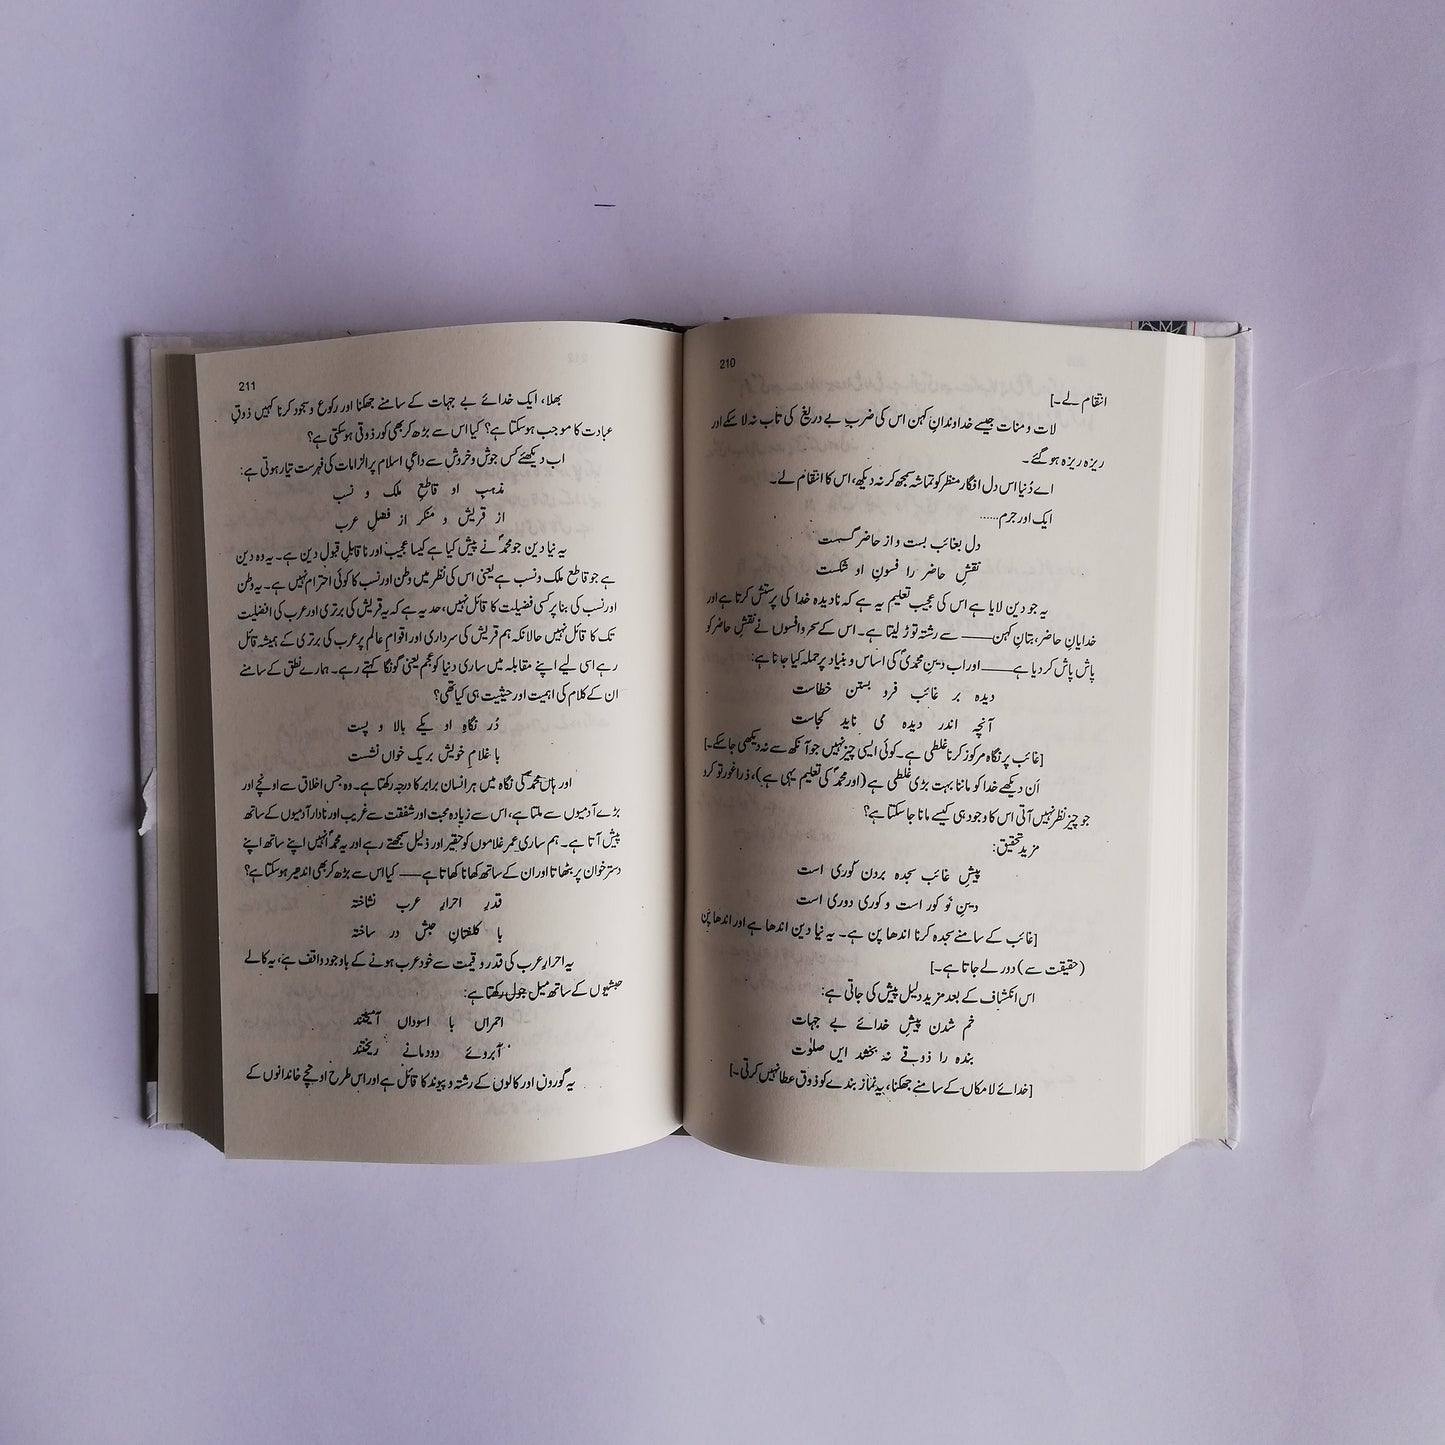 210
انتقام لے۔]
لات و منات جیسے خداوندانِ کہن اس کی ضربِ بے دریغ کی تاب نہ لا سکے اور
ریزہ ریزہ ہو گئے۔
اے دُنیا اس دل افگار منظر کو تماشہ سمجھ کر نہ دیکھ، اس کا انتقام لے۔
ایک اور جرم......
دل بغائب بست و از حاضر گسست
نقشِ حاضر را فسونِ او شکست
یہ جو دین لایا ہے اس کی عجیب تعلیم یہ ہے کہ نادیدہ خدا کی پرستش کرتا ہے اور
خدایانِ حاضر، بتانِ کہن —— سے رشتہ توڑ لیتا ہے۔ اس کے سحر و افسوں نے نقشِ حاضر کو
پاش پاش کر دیا ہے —— اور اب دینِ محمدیؐ کی اساس و بنیاد پر حملہ کیا جاتا ہے:
دیدہ بر غائب فرو بستن خطاست
آنچہ اندر دیدہ می ناید کجاست
[غائب پر نگاہ مرکوز کرنا غلطی ہے۔ کوئی ایسی چیز نہیں جو آنکھ سے نہ دیکھی جا سکے۔]
اَن دیکھے خدا کو ماننا بہت بڑی غلطی ہے (اور محمدؐ کی تعلیم یہی ہے)، ذرا غور تو کرو
جو چیز نظر نہیں آتی اس کا وجود ہی کیسے مانا جا سکتا ہے؟
مزید تحقیق:
پیشِ غائب سجدہ بردن کوری است
دینِ نو کور است و کوری دوری است
[غائب کے سامنے سجدہ کرنا اندھا پن ہے۔ یہ نیا دین اندھا ہے اور اندھا پن
(حقیقت سے) دور لے جاتا ہے۔]
اس انکشاف کے بعد مزید دلیل پیش کی جاتی ہے:
خم شدن پیشِ خدائے بے جہات
بندہ را ذوقے نہ بخشد ایں صلوٰت
[خدائے لامکاں کے سامنے جھکنا، یہ نماز بندے کو ذوق عطا نہیں کرتی۔]
211
بھلا، ایک خدائے بے جہات کے سامنے جھکنا اور رکوع و سجود کرنا کہیں ذوقِ
عبادت کا موجب ہو سکتا ہے؟ کیا اس سے بڑھ کر بھی کور ذوقی ہو سکتی ہے؟
اب دیکھئے کس جوش و خروش سے داعیِ اسلام پر الزامات کی فہرست تیار ہوتی ہے:
مذہبِ او قاطعِ ملک و نسب
از قریش و منکر از فضلِ عرب
یہ نیا دین جو محمدؐ نے پیش کیا ہے کیسا عجیب اور ناقابلِ قبول دین ہے۔ یہ وہ دین
ہے جو قاطع ملک و نسب ہے یعنی اس کی نظر میں وطن اور نسب کا کوئی احترام نہیں ہے۔ یہ وطن
اور نسب کی بنا پر کسی فضیلت کا قائل نہیں، حد یہ ہے کہ یہ قریش کی برتری اور عرب کی افضلیت
تک کا قائل نہیں حالانکہ ہم قریش کی سرداری اور اقوامِ عالم پر عرب کی برتری کے ہمیشہ قائل
رہے اسی لیے اپنے مقابلہ میں ساری دنیا کو عجم یعنی گونگا کہتے رہے۔ ہمارے نطق کے سامنے
ان کے کلام کی اہمیت اور حیثیت ہی کیا تھی؟
دُر نگاہِ او یکے بالا و پست
با غلامِ خویش بر یک خواں نشست
اور ہاں محمدؐ کی نگاہ میں ہر انسان برابر کا درجہ رکھتا ہے۔ وہ جس اخلاق سے اونچے اور
بڑے آدمیوں سے ملتا ہے، اس سے زیادہ محبت اور شفقت سے غریب اور نادار آدمیوں کے ساتھ
پیش آتا ہے۔ ہم ساری عمر غلاموں کو حقیر اور ذلیل سمجھتے رہے اور یہ محمدؐ انہیں اپنے ساتھ اپنے
دسترخوان پر بٹھاتا اور ان کے ساتھ کھانا کھاتا ہے —— کیا اس سے بڑھ کر بھی اندھیر ہو سکتا ہے؟
قدرِ احرارِ عرب نشاختہ
با کلفتانِ حبش در ساختہ
یہ احرارِ عرب کی قدر و قیمت سے خود عرب ہونے کے باوجود واقف ہے، یہ کالے
حبشیوں کے ساتھ میل جول رکھتا ہے:
احمراں با اسوداں آمیختند
آبروئے دودمانے ریختند
یہ گوروں اور کالوں کے رشتہ و پیوند کا قائل ہے اور اس طرح اونچے خاندانوں کے